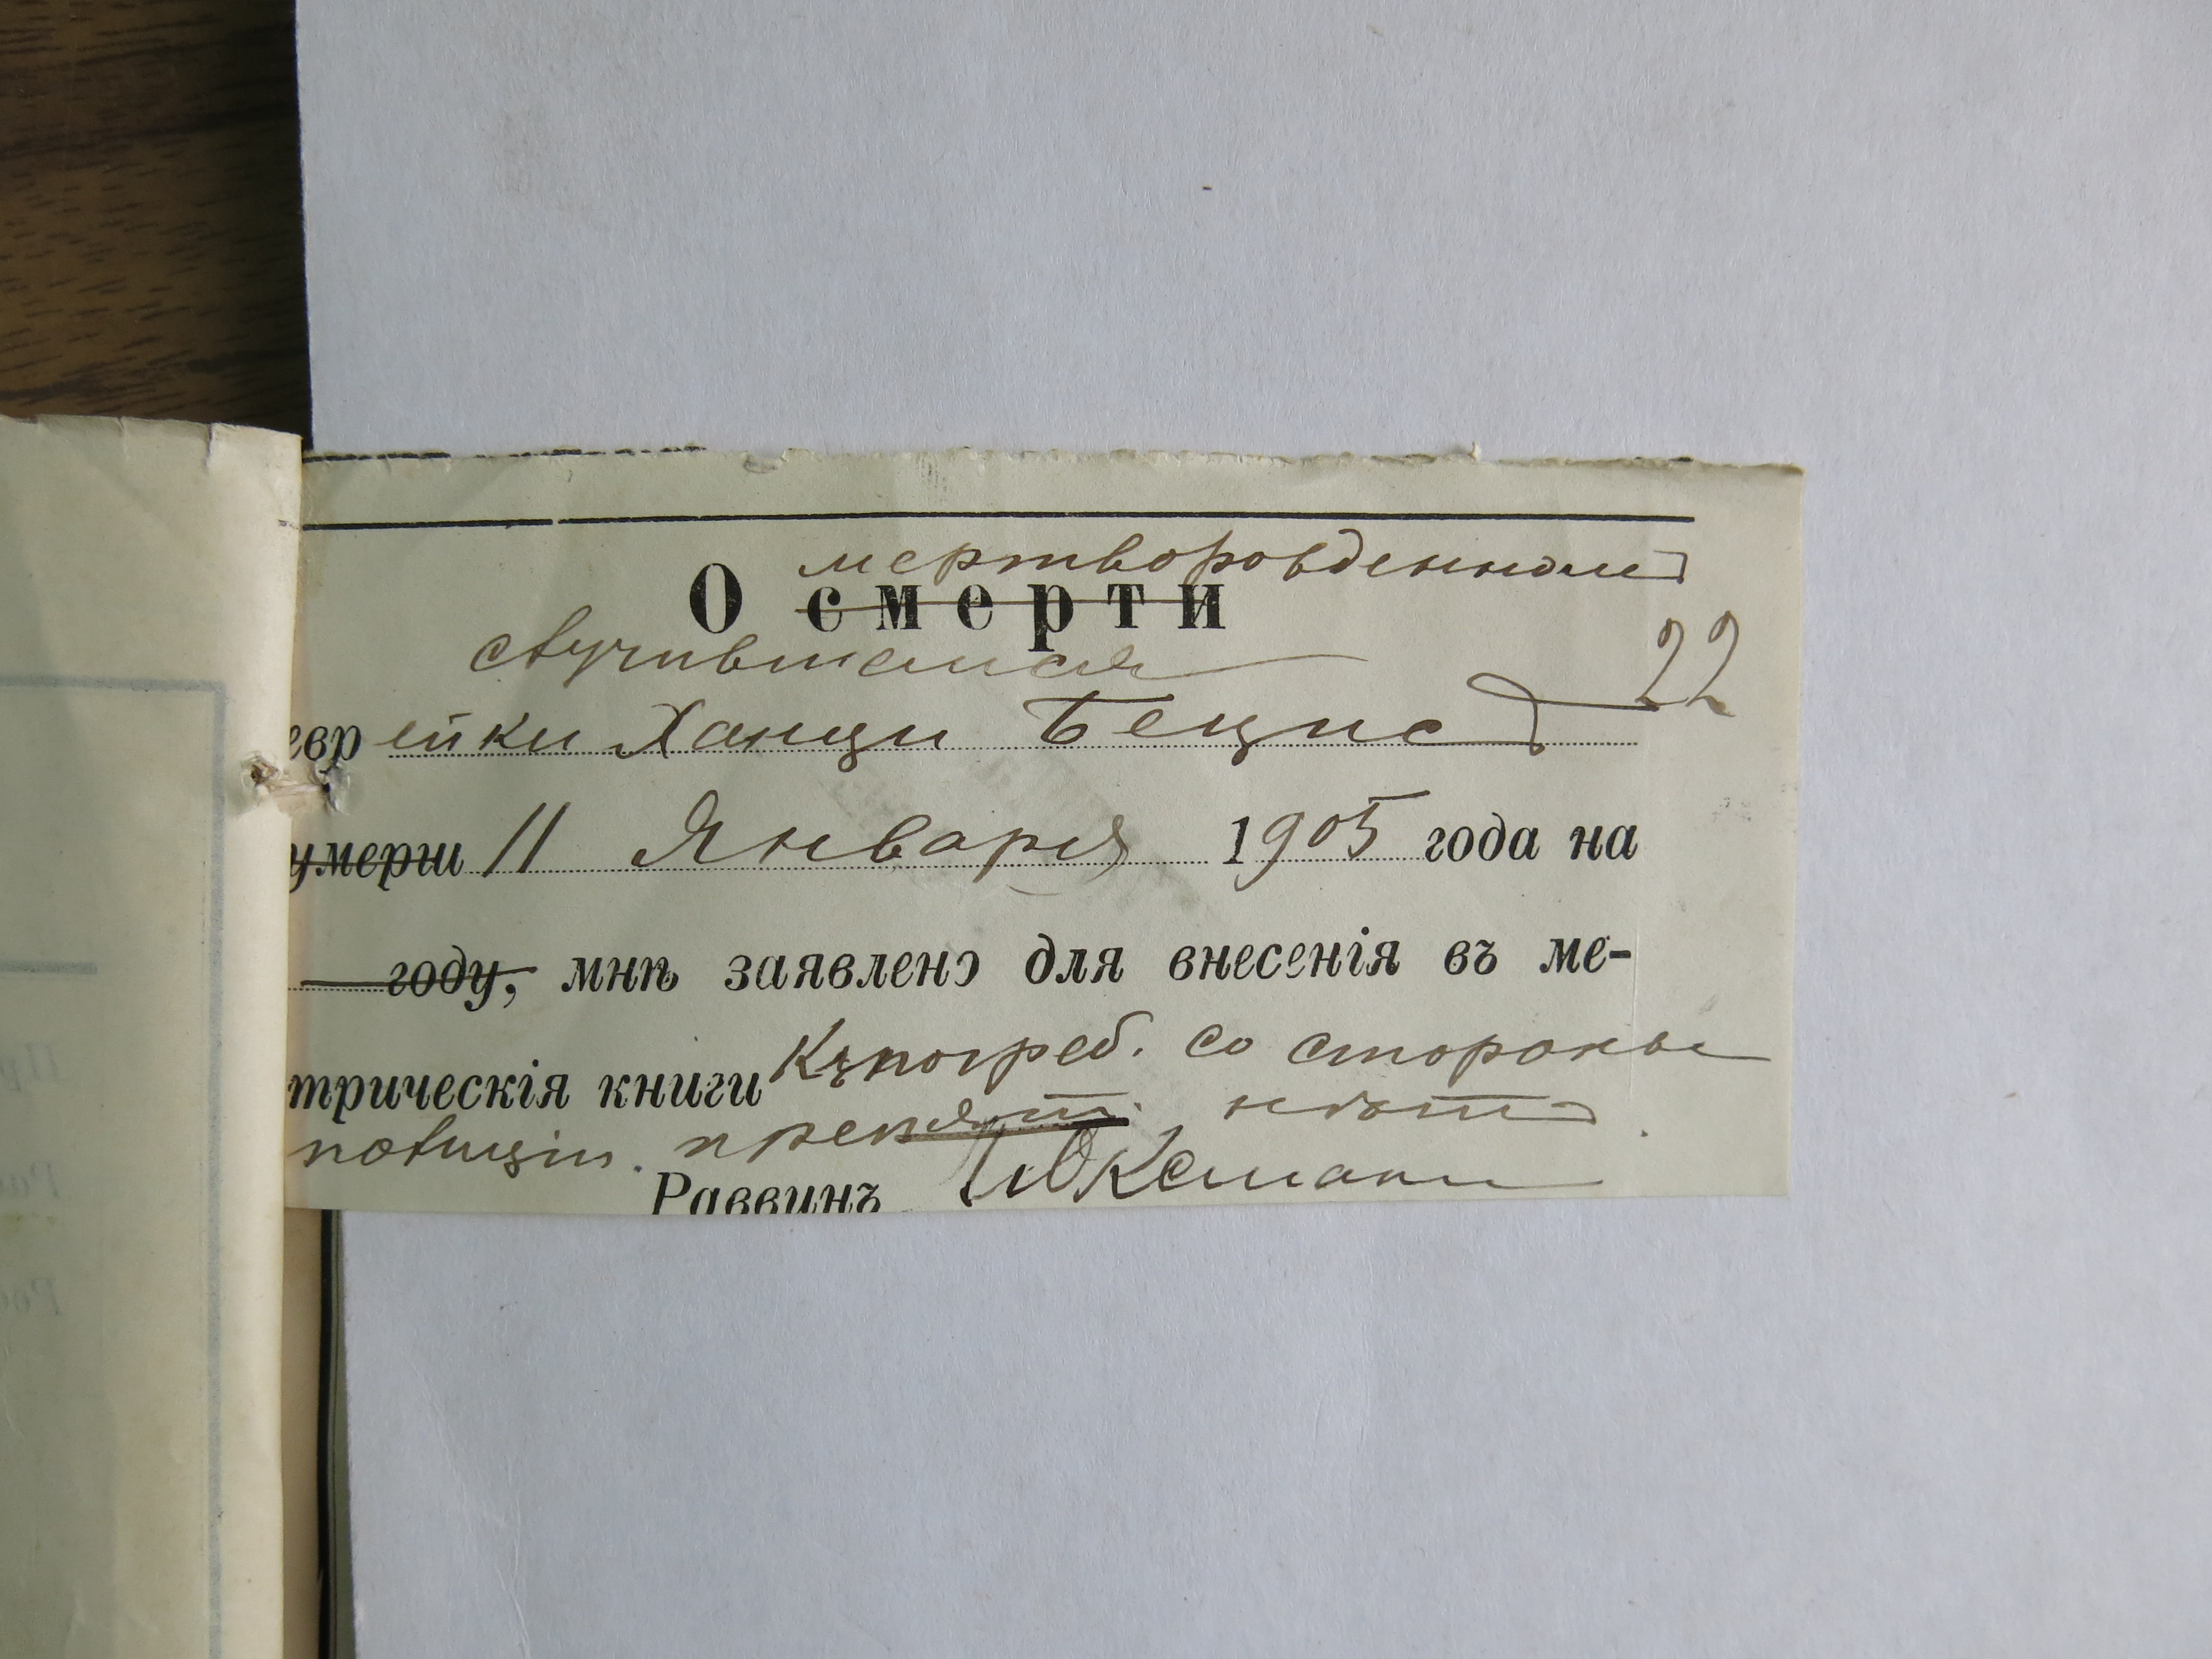 мертворожденномъ
О смерти
случившемся
22
еврейки Ханци Бецис
умерш 11 Января 1905 года на
году, мнѣ заявлено для внесенія въ ме-
трическія книги Къ погреб. со стороны
полиціи. препят. нѣтъ.
Раввинъ